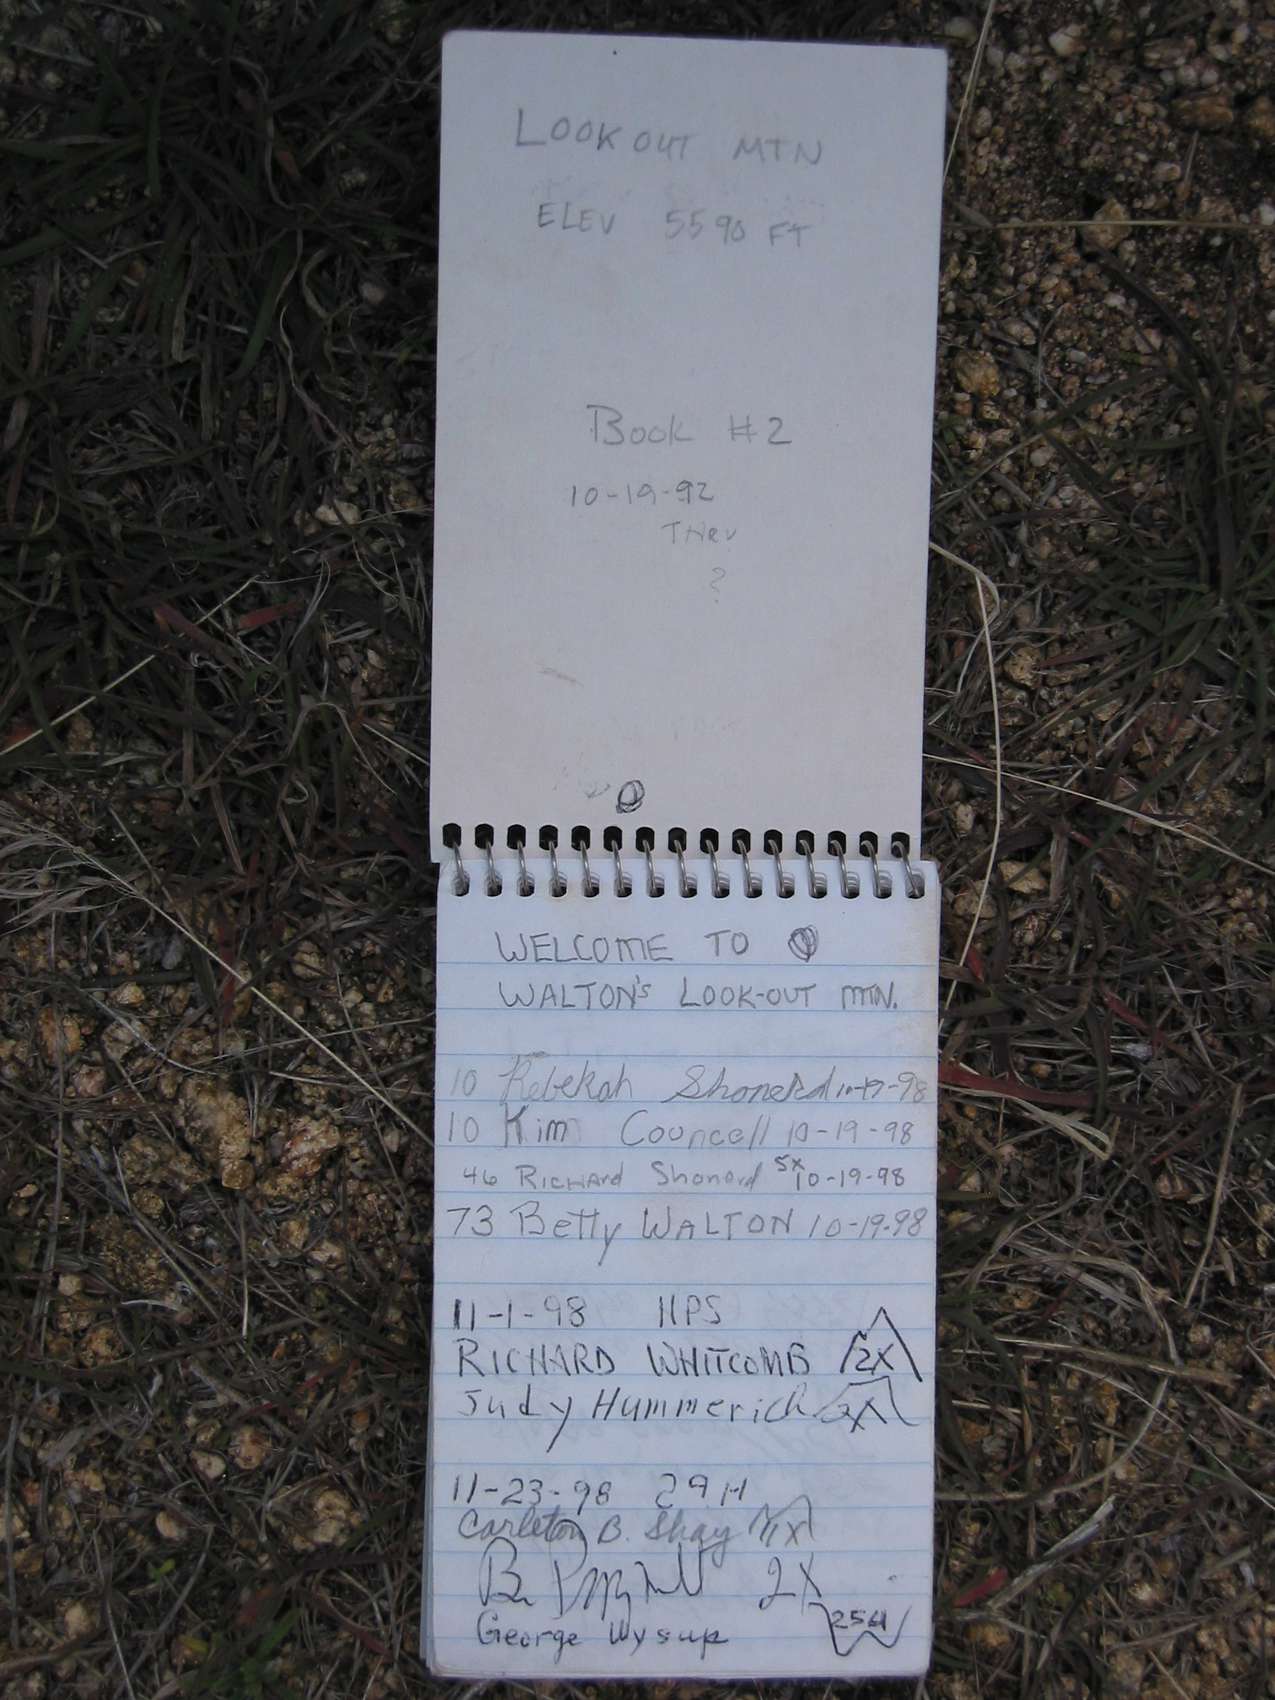 LOOKOUT MTN
ELEV 5590 FT
BOOK #2
10-19-92
THRU
?
WELCOME TO
WALTON'S LOOK-OUT MTN.
10 Rebekah Shonerd 10-19-98
10 Kim Councell 10-19-98
46 RICHARD Shonerd 5X 10-19-98
73 Betty WALTON 10-19-98
11-1-98 HPS
RICHARD WHITCOMB 2X
Judy Hummerich 2X
11-23-98
Carleton B. Shay
2X
George Wysup